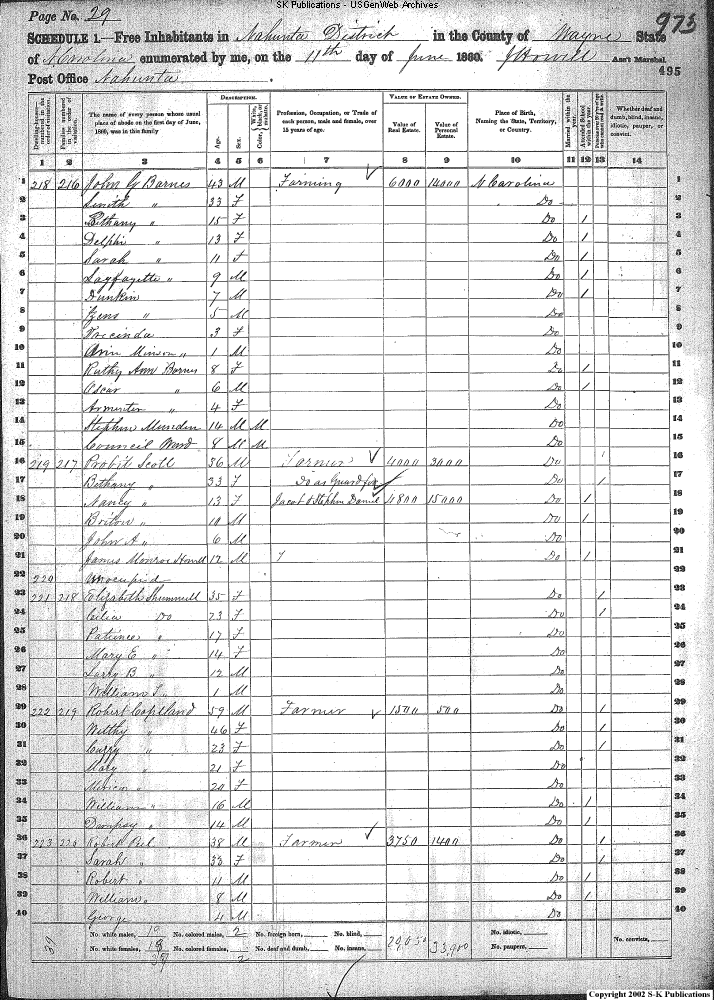 SK Publications - USGenWeb Archives
Page No. 29
973
SCHEDULE 1.—Free Inhabitants in Nahunta District in the County of Wayne State
of N Carolina enumerated by me, on the 11th day of June 1860. J Howell Ass't Marshal.
Post Office Nahunta. 495
DESCRIPTION. VALUE OF ESTATE OWNED.
Dwelling-houses numbered in the order of visitation. Families numbered in the order of visitation. The name of every person whose usual place of abode on the first day of June, 1860, was in this family Age. Sex. Color, White, black, or mulatto. Profession, Occupation, or Trade of each person, male and female, over 15 years of age. Value of Real Estate. Value of Personal Estate. Place of Birth, Naming the State, Territory, or Country. Married within the year. Attended School within the year. Whether deaf and dumb, blind, insane, idiotic, pauper, or convict.
1 2 3 4 5 6 7 8 9 10 11 12 13 14
1 218 216 John G Barnes 43 M Farming 6000 14000 N Carolina 1
2 " 33 F Do 2
3 Bethany " 15 F Do 1 3
4 Delphi " 13 F Do 1 4
5 Sarah " 11 F Do 1 5
6 Layfayette " 9 M Do 1 6
7 Dunkin 7 M Do 1 7
8 " 5 M Do 8
9 " 3 F Do 9
10 Minson " 1 M Do 10
11 Ruthy Ann Barnes 8 F Do 1 11
12 Oscar " 6 M Do 1 12
13 " 4 F Do 13
14 Stephen 14 M M Do 14
15 Council Ward 8 M M Do 15
16 219 217 Probit Scott 36 M Farmer 4000 3000 Do 1 16
17 Bethany " 33 F Do as Guard for Do 1 17
18 Nancy " 13 F Jacob & Stephen Daniel 4800 15000 Do 1 18
19 " 10 M Do 1 19
20 John A " 6 M Do 20
21 James Monroe Howell 12 M Do 1 21
22 220 Unocupied 22
23 221 218 Elizabeth 35 F Do 1 23
24 Celia Do 23 F Do 1 24
25 Patience " 17 F Do 25
26 Mary E " 14 F Do 26
27 B " 12 M Do 27
28 William T " 1 M Do 28
29 222 219 Robert Copeland 59 M Farmer 1500 500 Do 1 29
30 " 46 F Do 1 30
31 " 23 F Do 1 31
32 Mary " 21 F Do 32
33 " 20 F Do 33
34 William " 16 M Do 1 34
35 " 14 M Do 1 35
36 223 220 Robert Peel 38 M Farmer 3750 1400 Do 1 36
37 Sarah " 33 F Do 1 37
38 Robert " 11 M Do 1 38
39 William " 8 M Do 1 39
40 George 4 M Do 40
No. white males, 19 No. colored males, 2 No. foreign born, No. blind, No. idiotic,
No. white females, 18 No. colored females, No. deaf and dumb, No. insane, 33,900 No. paupers, No. convicts,
2
Copyright 2002 S-K Publications